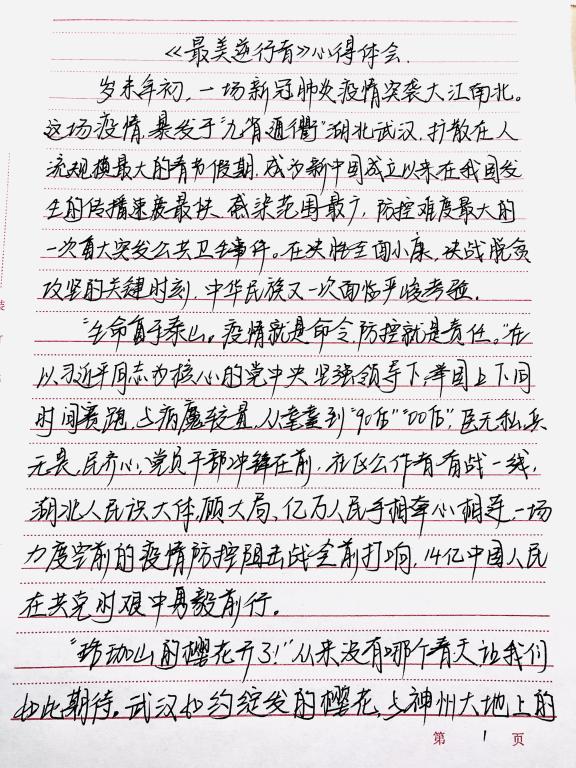 《最美逆行者》心得体会.
岁末年初，一场新冠肺炎疫情突袭大江南北。
这场疫情，暴发于“九省通衢”湖北武汉，打散在人
流规模最大的春节假期，成为新中国成立以来在我国发
生的传播速度最快、感染范围最广，防控难度最大的
一次重大突发公共卫生事件。在决胜全面小康，决战脱贫
攻坚的关键时刻，中华民族又一次面临严峻考验.
“生命重于泰山。疫情就是命令，防控就是责任。”在
以习近平同志为核心的党中央坚强领导下，举国上下同
时间赛跑，与病魔较量，从耄耋到“90后”“00后”，医无私兵
无畏，民齐心，党员干部冲锋在前，社区工作者奋战一线，
湖北人民识大体、顾大局、亿万人民手相牵心相连，一场
力度空前的疫情防控阻击战全面打响，14亿中国人民
在共克时艰中勇毅前行。
“珞珈山的樱花开了！”从来没有哪个春天让我们
如此期待。武汉如约绽发的樱花，与神州大地上的
第 1 页